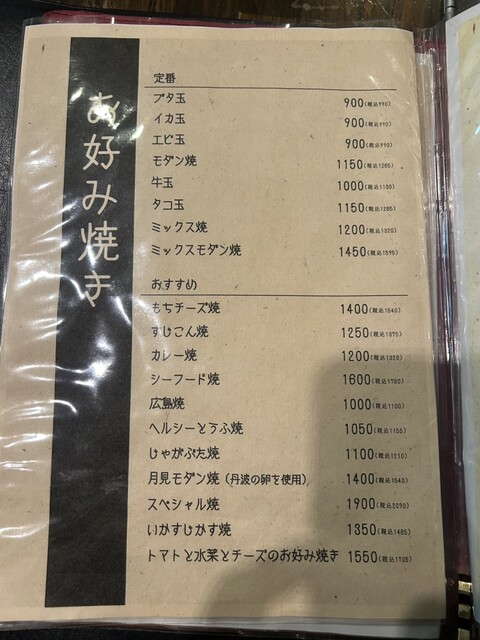 お好み焼き
定番
ブタ玉 900(税込990)
イカ玉 900(税込990)
エビ玉 900(税込990)
モダン焼 1150(税込1265)
牛玉 1000(税込1100)
タコ玉 1150(税込1265)
ミックス焼 1200(税込1320)
ミックスモダン焼 1450(税込1595)
おすすめ
もちチーズ焼 1400(税込1540)
すじこん焼 1250(税込1375)
カレー焼 1200(税込1320)
シーフード焼 1600(税込1760)
広島焼 1000(税込1100)
ヘルシーとうふ焼 1050(税込1155)
じゃがぶた焼 1100(税込1210)
月見モダン焼(丹波の卵を使用) 1400(税込1540)
スペシャル焼 1900(税込2090)
いかすじかす焼 1350(税込1485)
トマトと水菜とチーズのお好み焼き 1550(税込1705)